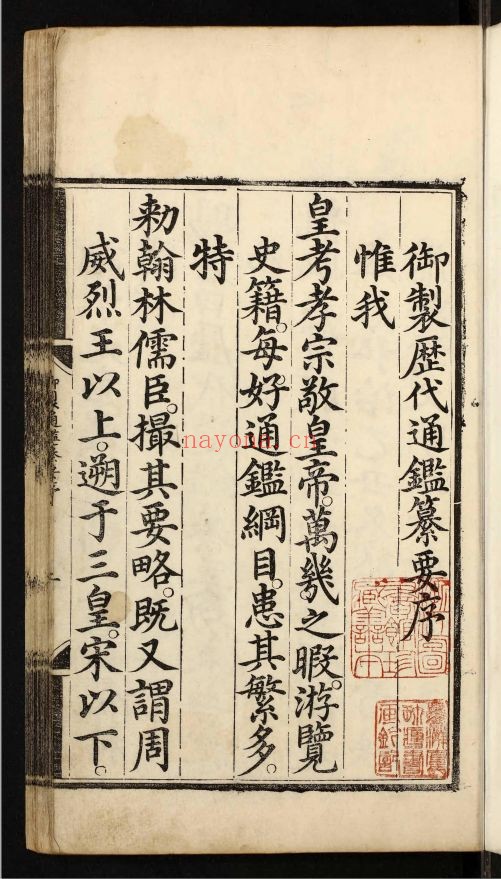 御製歷代通鑑纂要序
惟我
皇考孝宗敬皇帝。萬幾之暇。游覽
史籍。每好通鑑綱目。患其繁多。
特
勑翰林儒臣。撮其要略。既又謂周
威烈王以上。遡于三皇。宋以下。
nayona.cn